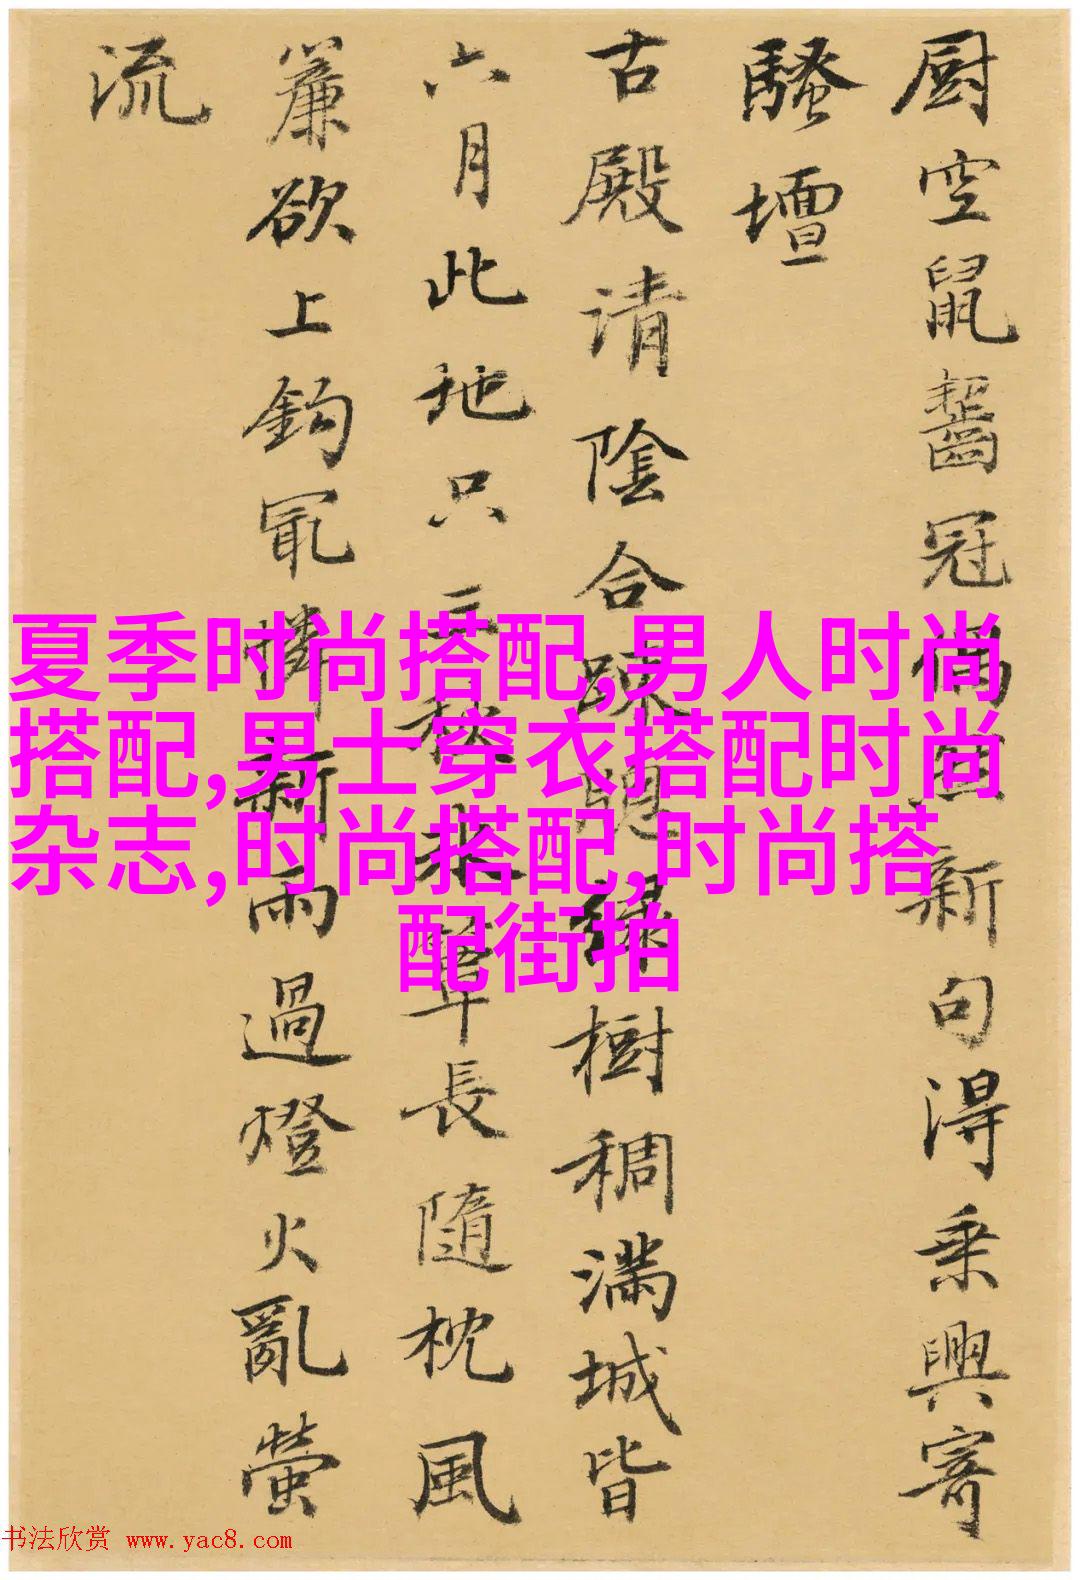 厨空鼠齧冠偶然新句得乘興寄
騷壇
古殿请陰合疎聰緑樹稠满城皆
六月此地只三秋水簟長隨枕風
簾欲上鈎冣憐新雨過燈火亂螢
流
夏季时尚搭配,男人时尚
搭配,男士穿衣搭配时尚
杂志,时尚搭配,时尚搭
配街拍
书法欣赏 www.yac8.com